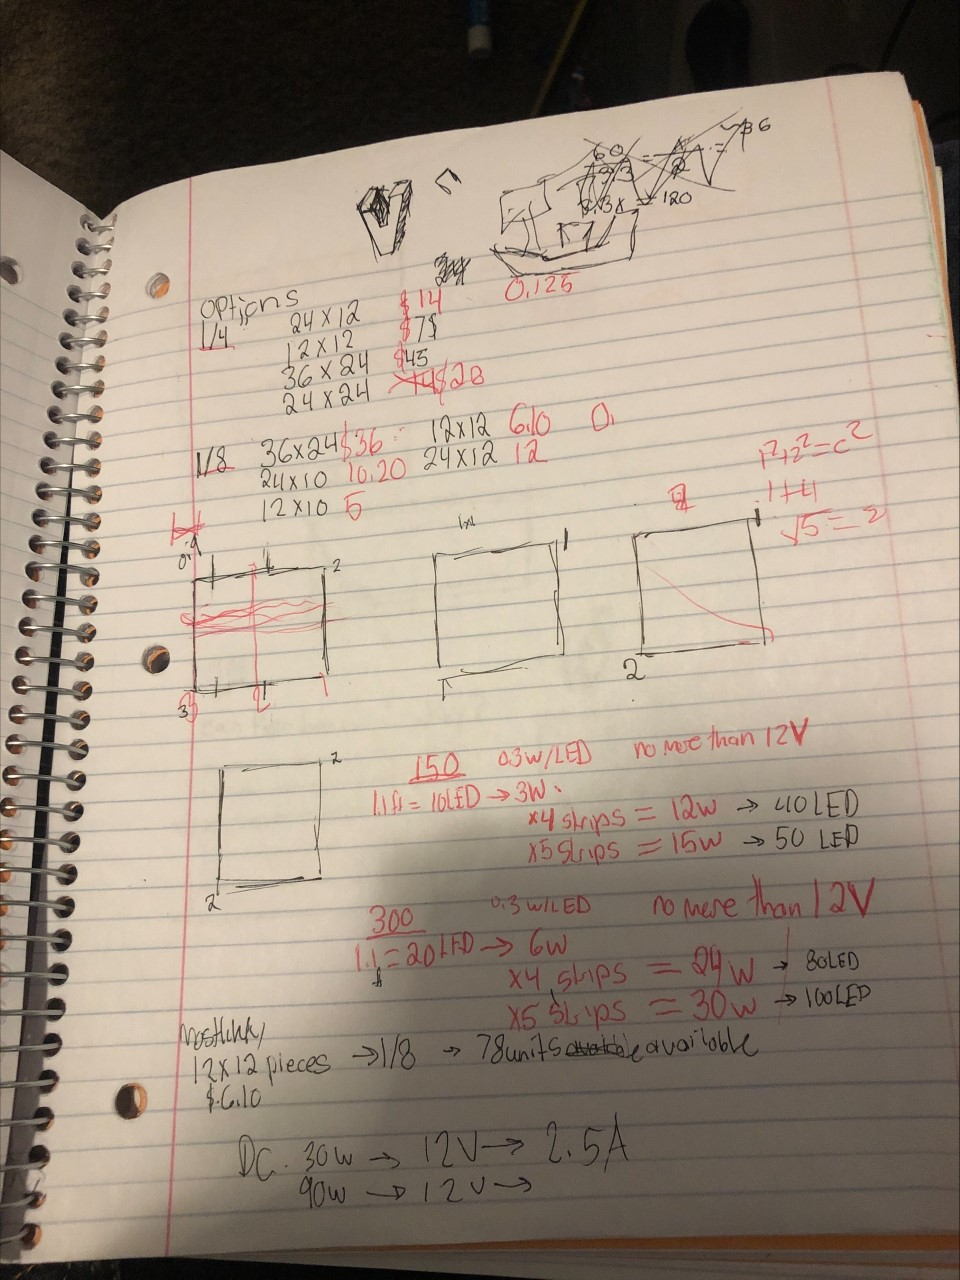 60
2
36
.3x = 120
0.125
options
1/4" 24x12 $14
12x12 $7$
36x24 $45
24x24 $28
1/8 36x24 $36 12x12 6.10 0.
24x10 10.20 24x12 12
12x10 5
1²+2²=c²
1+4
√5 = 2
2
1x1
1
1
1
2
3
2
2
150 0.3w/LED no more than 12V
1.1ft = 10LED → 3W.
x4 strips = 12w → 40LED
x5 strips = 15w → 50 LED
2
300 0.3 w/LED no more than 12V
1.1 = 20LED → 6w
x4 strips = 24w → 80LED
x5 strips = 30w → 100LED
12x12 pieces → 1/8 → 78 units available
$6.10
DC. 30w → 12V → 2.5A
90w → 12v →